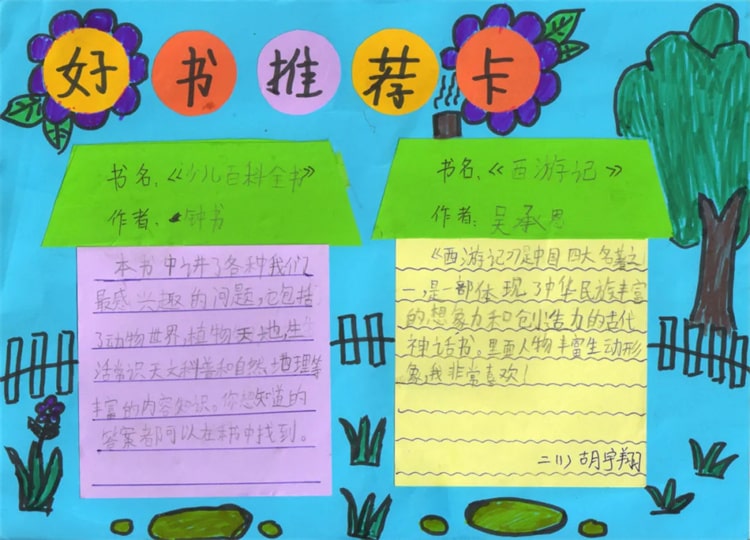 好书推荐卡
书名:《少儿百科全书》
作者:钟书
本书中讲了各种我们
最感兴趣的问题,它包括
了动物世界,植物天地,生
活常识天文科普和自然、地理等
丰富的内容知识。你想知道的
答案都可以在本书中找到。
书名:《西游记》
作者:吴承恩
《西游记》是中国四大名著之
一,是一部体现了中华民族丰富
的想象力和创造力的古代
神话书。里面人物丰富生动形
象,我非常喜欢!
二(1)胡宇翔